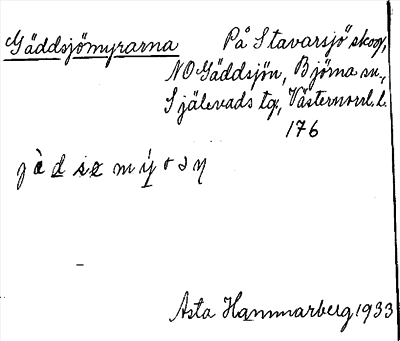 Gäddsjömyrarna På Stavarsjö skog,
NO Gäddsjön, Björna sn,
Själevads tg, Västernorrl. l.
176
Asta Hammarberg 1933